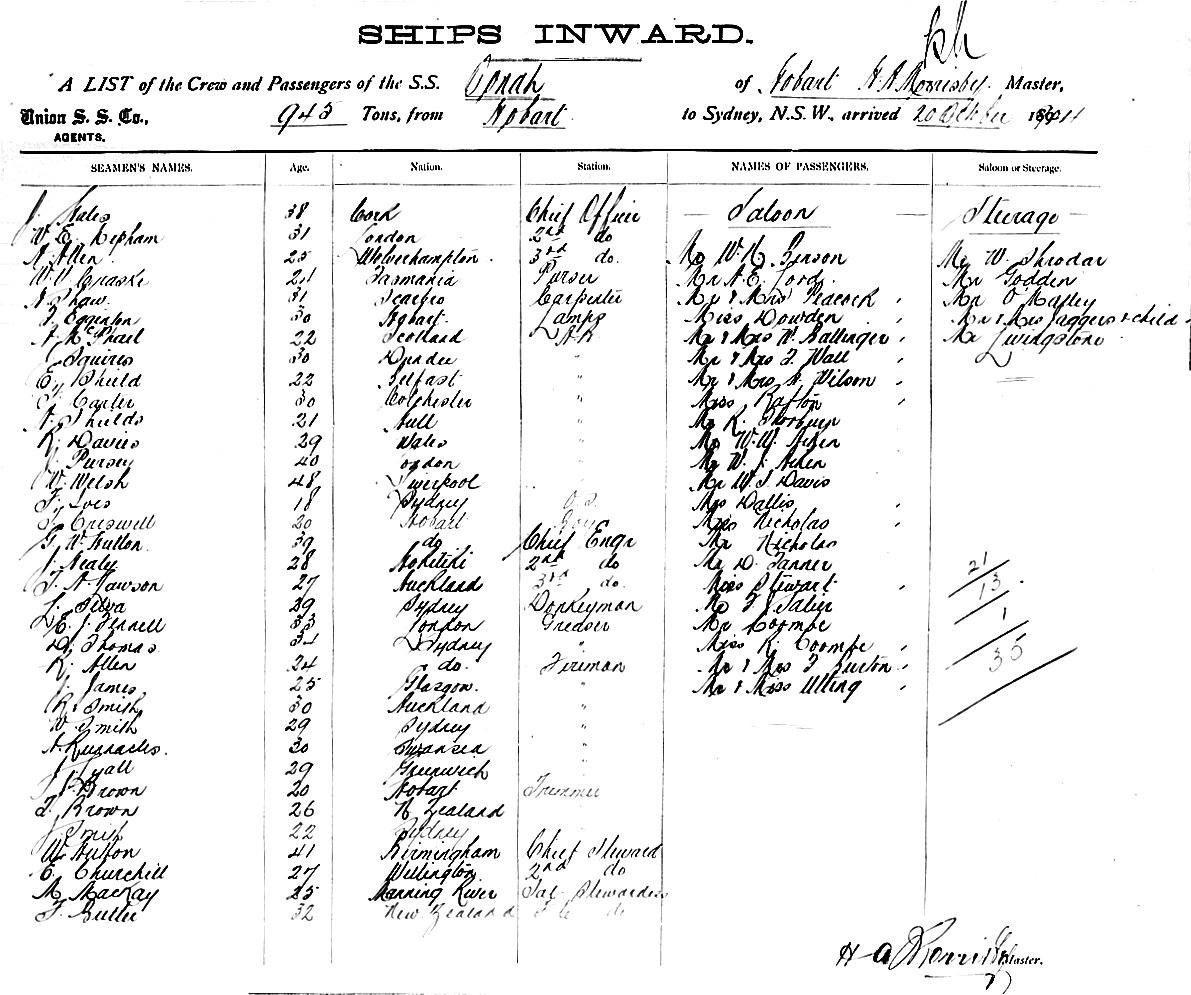 SHIPS INWARD.
A LIST of the Crew and Passengers of the S.S. Oonah of Hobart H. A. Morrisby Master,
Union S. S. Co., 945 Tons, from Hobart to Sydney, N.S.W., arrived 20 October 1911
AGENTS.
SEAMEN'S NAMES. Age. Nation. Station. NAMES OF PASSENGERS. Saloon or Steerage.
J. Hales 38 Cork Chief Officer — Saloon — Steerage —
W. E. Mepham 31 London 2nd do
H. Allen 25 Wolverhampton 3rd do. Mr W. H. Benson Mr W Shrodar
W. V. Craske 21 Tasmania Purser Mr A. E. Lord Mr Godden
A Shaw 31 Scarbro Carpenter Mr & Mrs Peacock Mr O Malley
Egginton 30 Hobart Lamps Miss Dowden Mr & Mrs Jaggers & child
A McPhail 22 Scotland A B Mr & Mrs W. Ballinger Mr Livingstone
Squires 30 Dundee " Mr & Mrs Wall
E. Shield 22 Belfast " Mr & Mrs Wilson
Carter 30 Colchester " Miss Rafton
A. Shields 21 Hull " Mr R.
R. Davies 29 Wales " Mr W. W. Aiken
J. Pursey 40 London " Mr W. J. Aiken
W. Welsh 48 Liverpool " Mr W Davis
Ives 18 Sydney O.S. Mrs Dallis
Creswell 20 Hobart Boy Mrs Nicholas
G. W. Hutton 39 do Chief Engr Mr Nicholas
J. Nealy 28 Hokitiki 2nd do Mr D. Tanner 21
A. Lawson 27 Auckland 3rd do. Miss Stewart 13
L. Silva 39 Sydney Donkeyman Mr Salier 1
E. J. Fennell 33 London Greaser Mr Coombe
D. Thomas 34 Sydney " Miss R. Coombe 35
R. Allen 24 do. Fireman Mr & Mrs Burton
J. James 25 Glasgow. " Mr & Miss Ulling
R. Smith 30 Auckland "
W Smith 29 Sydney "
A. 30 Swansea "
J Lyall 29 Greenwich "
Brown 20 Hobart Trimmer
Brown 26 N Zealand
J Smith 22 Sydney
W. Hutton 41 Birmingham Chief Steward
E. Churchill 27 Wellington 2nd do
M. MacKay 25 Manning River Sal Stewardess
Butler 32 New Zealand do
H A Morrisby Master.